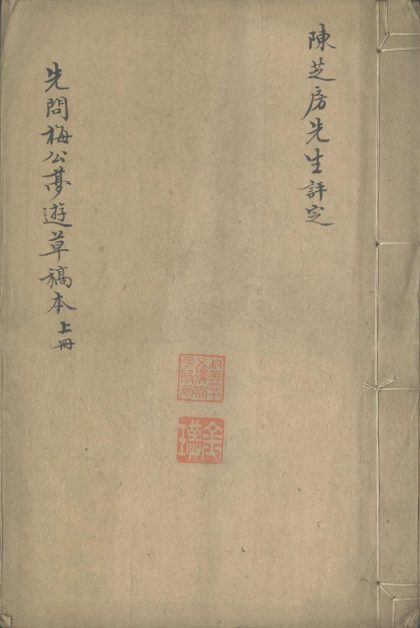 陳芝房先生評定
先問梅公夢遊草稿本上冊